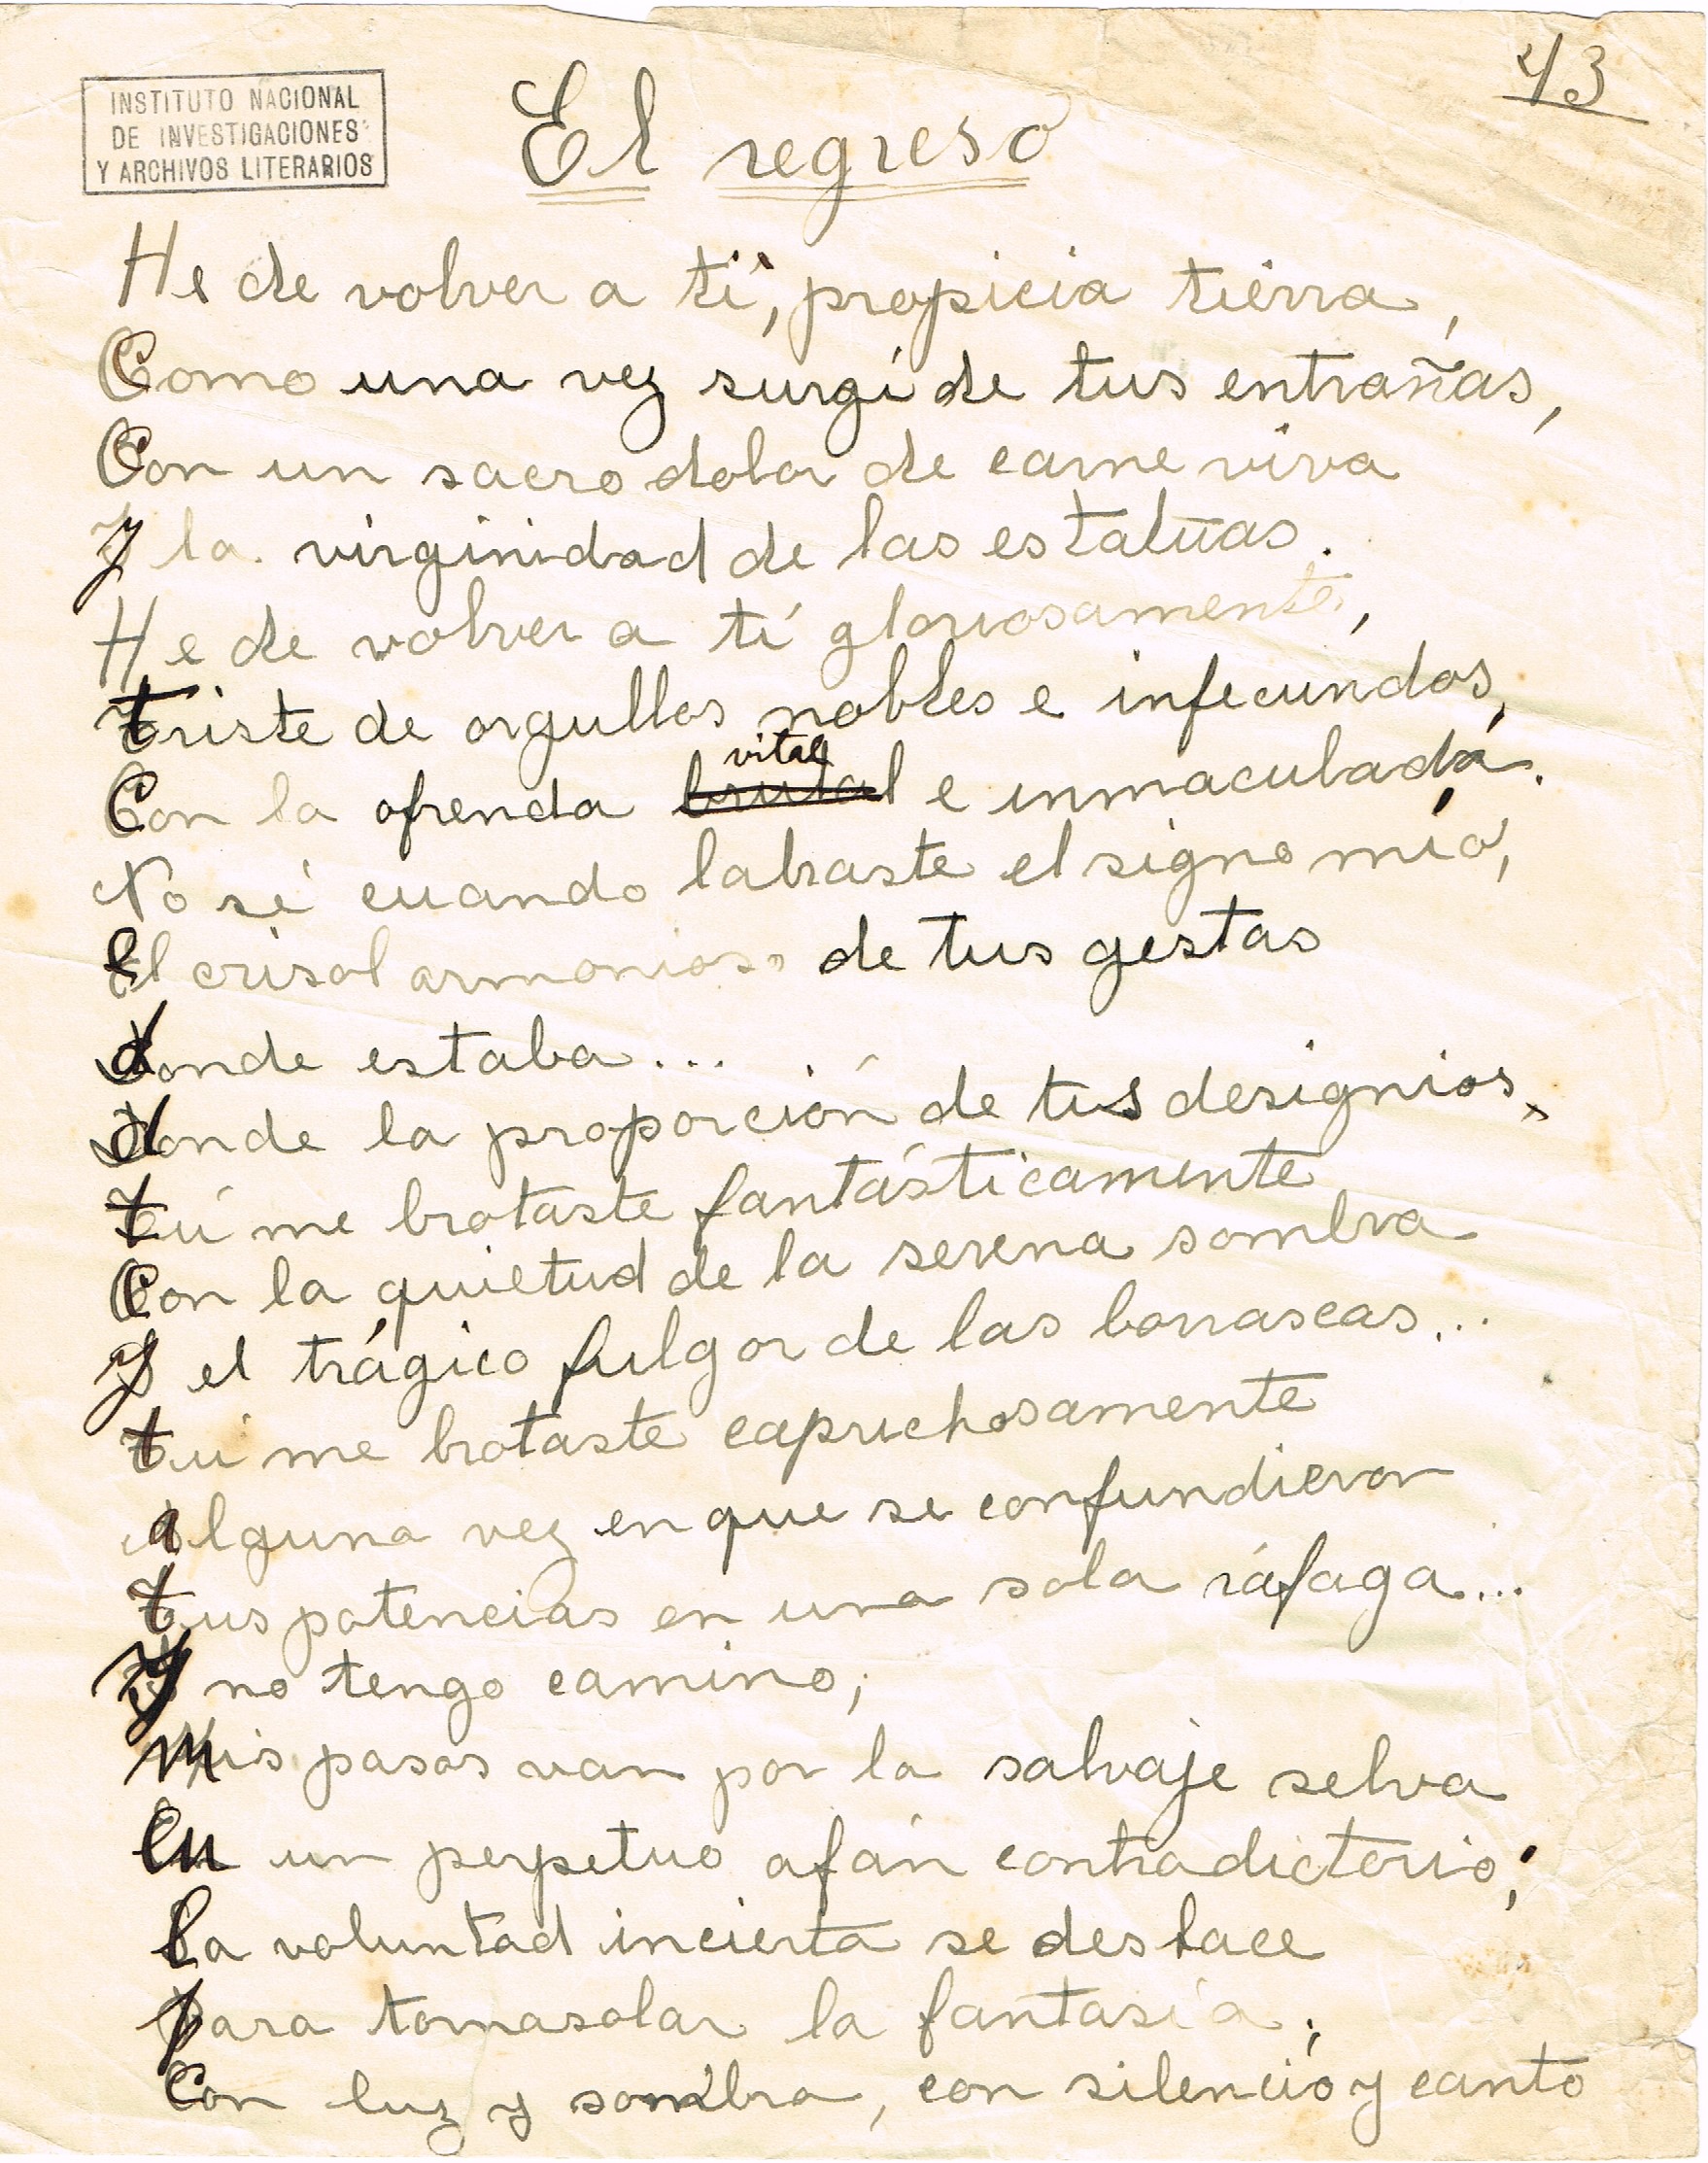 43
INSTITUTO NACIONAL
DE INVESTIGACIONES
Y ARCHIVOS LITERARIOS
El regreso
He de volver a tí, propicia tierra,
Como una vez surgí de tus entrañas,
Con un sacro dolor de carne viva
y la virginidad de las estatuas.
He de volver a tí gloriosamente,
triste de orgullos nobles e infecundos,
Con la ofrenda vital e inmaculada.
brutal
No sé cuando labraste el signo mío,
el crisol armonioso de tus gestas
donde estaba...
donde la proporción de tus designios,
tú me brotaste fantásticamente
Con la quietud de la serena sombra
y el trágico fulgor de las borrascas...
tú me brotaste caprichosamente
alguna vez en que se confundieron
tus potencias en una sola ráfaga...
Y no tengo camino;
mis pasos van por la salvaje selva
en un perpetuo afán contradictorio;
la voluntad incierta se deshace
para tornasolar la fantasía;
Con luz y sombra, con silencio y canto